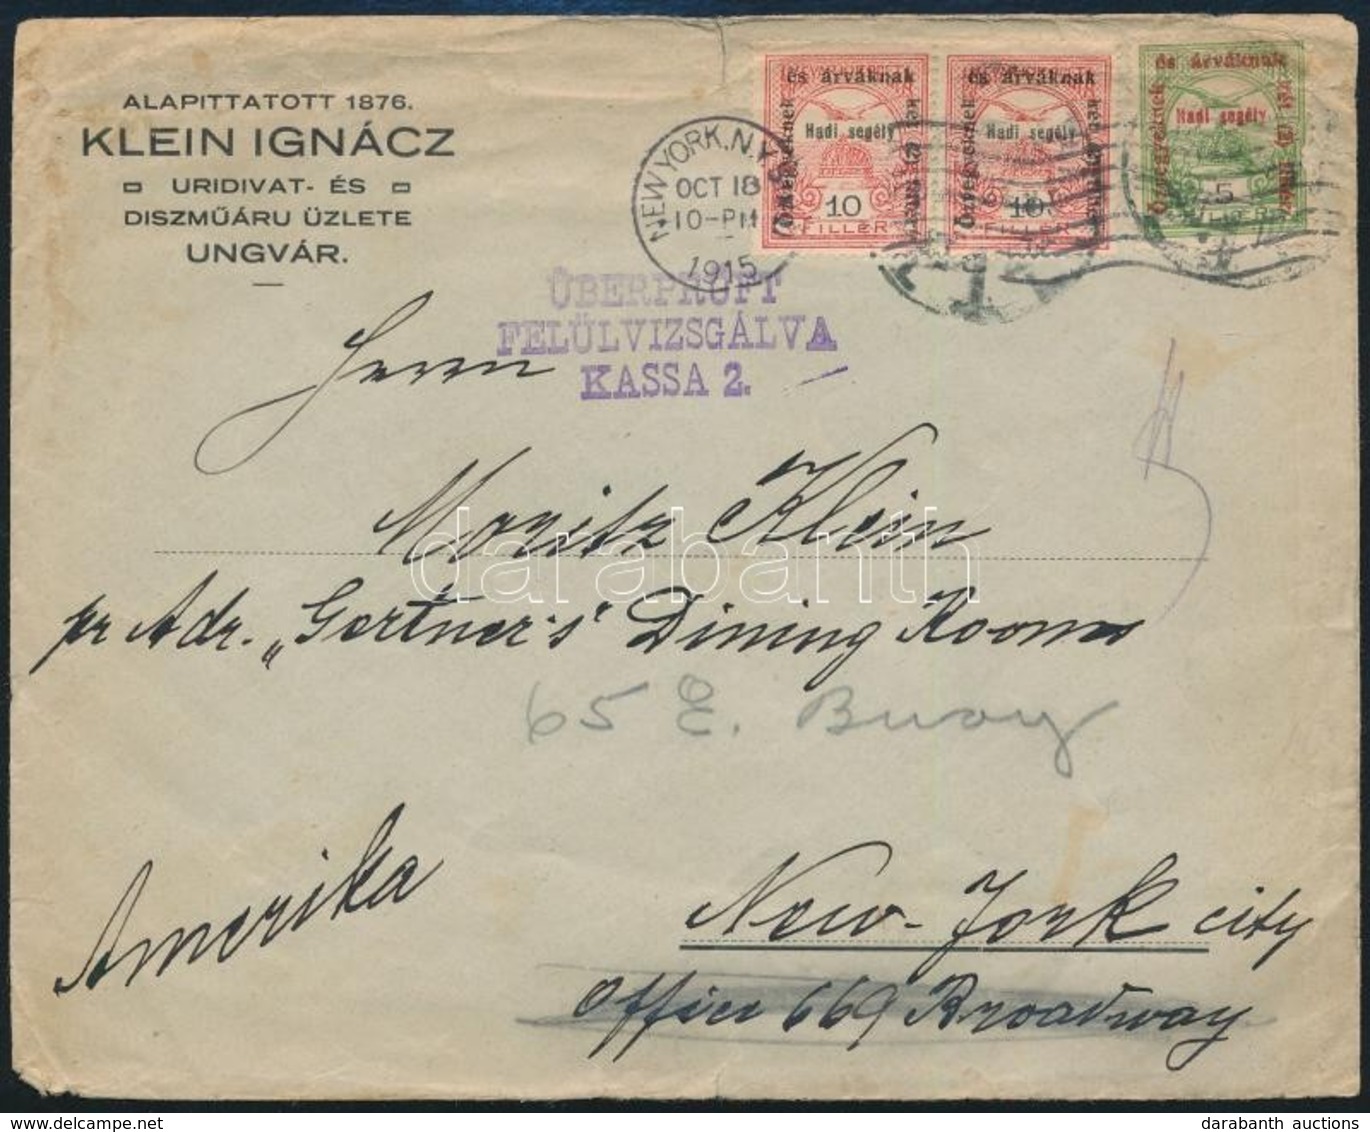 ALAPITTATOTT 1876.
KLEIN IGNÁCZ
URIDIVAT- ÉS
DISZMŰÁRU ÜZLETE
UNGVÁR.
NEW YORK, N.Y.
OCT 18
10-PM
1915
és árváknak
Özvegyeknek
Hadi segély
két (2) fillér
10
FILLÉR
és árváknak
Özvegyeknek
Hadi segély
10
FILLÉR
és árváknak
Özvegyeknek
Hadi segély
két (2) fillér
5
FILLÉR
T
ÜBERPRÜFT
FELÜLVIZSGÁLVA
KASSA 2.
Herrn
Moritz Klein
pr Adr. „Gertner's" Dining Rooms
65 E. Bway
Amerika
New-York city
Office 669 Broadway
darabanth
darabanth auctions